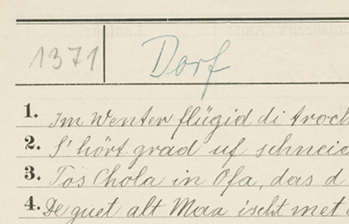 1371 Dorf
1. Im Wenter flügid di troch
2. S'hört grad uf schneie
3. Tos Chola in Ofa, das d
4. De guet alt Maa ischt met